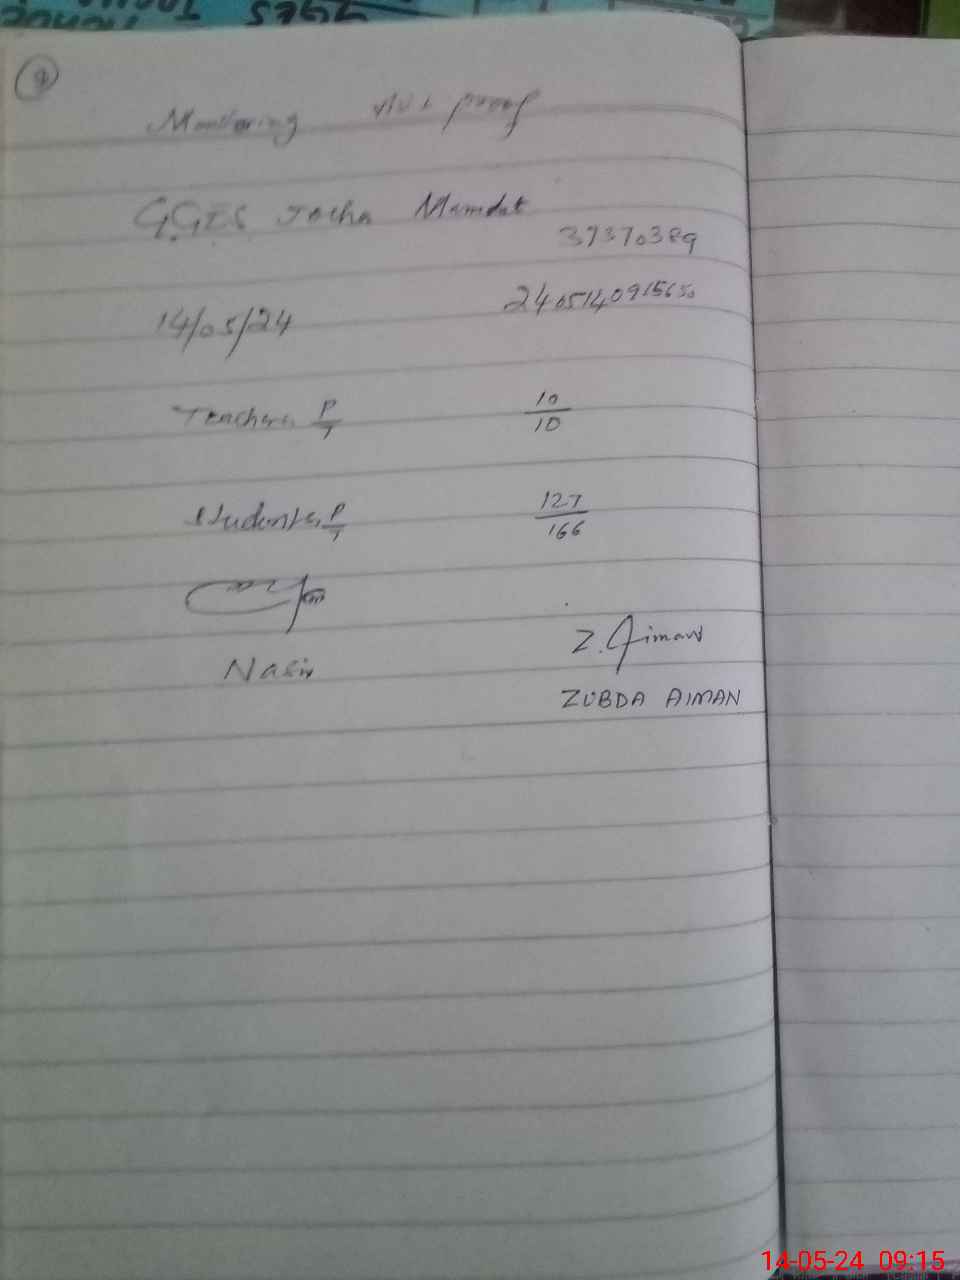 9
Monitoring proof
G.GES Jotha Mamdat
37370389
14/05/24 240514091565
Teachers P/T 10/10
Students P/T 127/166
Z. Aiman
Nasir
ZUBDA AIMAN
14-05-24 09:15